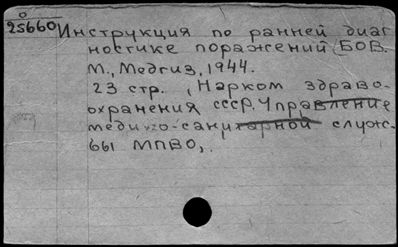 О
25660
Инструкция по ранней диаг
ностике поражений БОВ.
М., Медгиз, 1944.
23 стр. (Нарком здраво-
охранения СССР. Управление
медико-санитарной служ-
бы МПВО,.